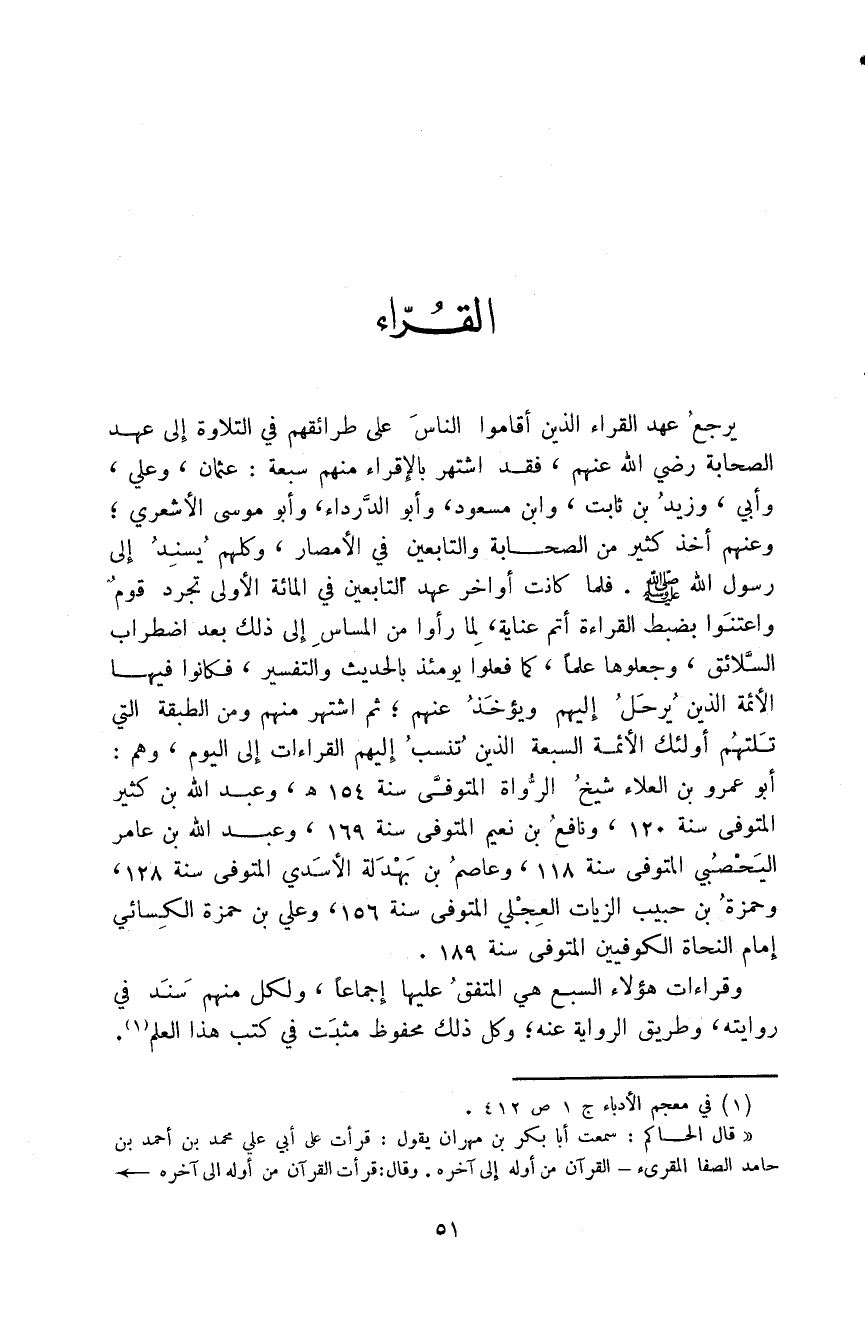 القُــرّاء
يرجعُ عهد القراء الذين أقاموا الناسَ على طرائقهم في التلاوة إلى عهـد
الصحابة رضي الله عنهم ، فقـد اشتهر بالإقراء منهم سبعة : عثمان ، وعلي ،
وأبي ، وزيدُ بن ثابت ، وابن مسعود، وأبو الدَّرداء، وأبو موسى الأشعري ؛
وعنهم أخذ كثير من الصحـــابة والتابعين في الأمصار ، وكلهم يُسنِدُ إلى
رسول الله ﷺ . فلما كانت أواخر عهد التابعين في المائة الأولى تجرد قومٌ
واعتنَوا بضبط القراءة أتم عناية، لِما رأوا من المساسِ إلى ذلك بعد اضطراب
السَّلائق ، وجعلوها علماً ، كما فعلوا يومئذ بالحديث والتفسير ، فـكانوا فيهـــا
الأئمة الذين يُرحَلُ إليهم ويؤخَذُ عنهم ؛ ثم اشتهر منهم ومن الطبقة التي
تـَلتهُم أولئك الأئمـة السبعة الذين تُنسبُ إليهم القراءات إلى اليوم ، وهم :
أبو عمرو بن العلاء شيخُ الرُّواة المتوفـَّى سنة ١٥٤ هـ ، وعبـد الله بن كثير
المتوفى سنة ١٢٠ ، ونافعُ بن نعيم المتوفى سنة ١٦٩ ، وعبــد الله بن عامر
اليَحْصُبي المتوفى سنة ١١٨ ، وعاصمُ بن بَهْدَلة الأسَدي المتوفى سنة ١٢٨،
وحمزةُ بن حبيب الزيات العِجْلي المتوفى سنة ١٥٦، وعلي بن حمزة الكِسائي
إمام النحاة الكوفيين المتوفى سنة ١٨٩ .
وقراءات هؤلاء السبع هي المتفقُ عليها إجماعاً ، ولكل منهم سَنَد في
روايته، وطريق الرواية عنه؛ وكل ذلك محفوظ مثبَت في كتب هذا العلم(١).
(١) في معجم الأدباء ج ١ ص ٤١٢ .
« قال الحــاكم : سمعت أبا بكر بن مهران يقول : قرأت على أبي علي محمد بن أحمد بن
حامد الصفا المقرىء – القرآن من أوله إلى آخره . وقال:قرأت القرآن من أوله الى آخره ←
٥١